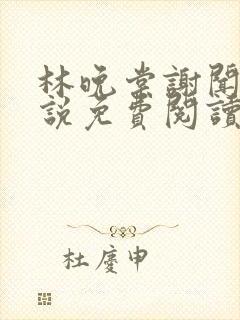 林晚棠謝聞
說免費閱讀
杜慶申